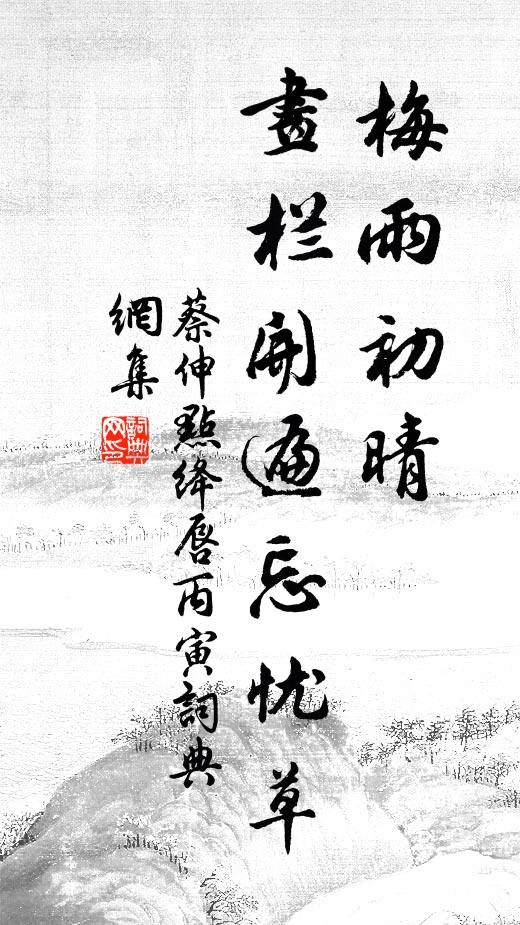 梅雨初晴
畫栏開遍忘忧草
蔡伸點绛唇丙寅詞典
網集
詞典
网印